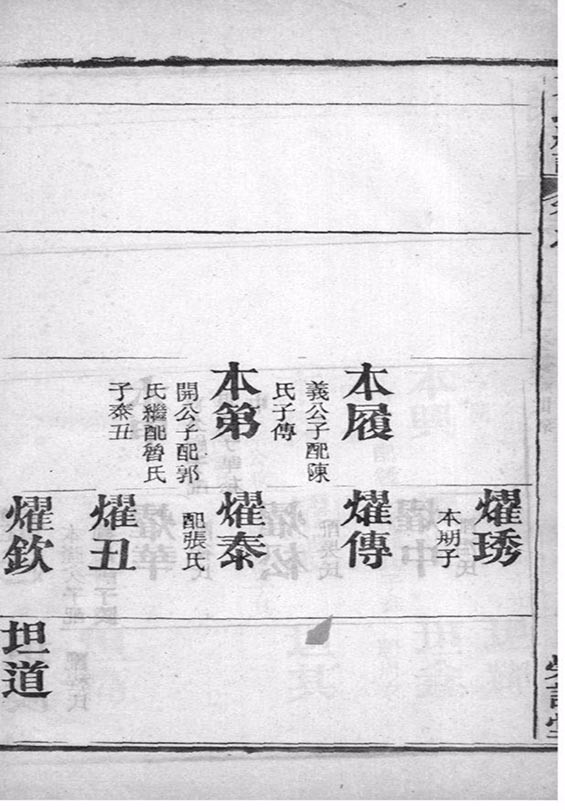 本履
義公子配陳
氏子傳
本第
開公子配郭
氏繼配魯氏
子泰丑
耀琇
本朞子
耀傳
耀泰
配張氏
耀丑
耀欽
坦道